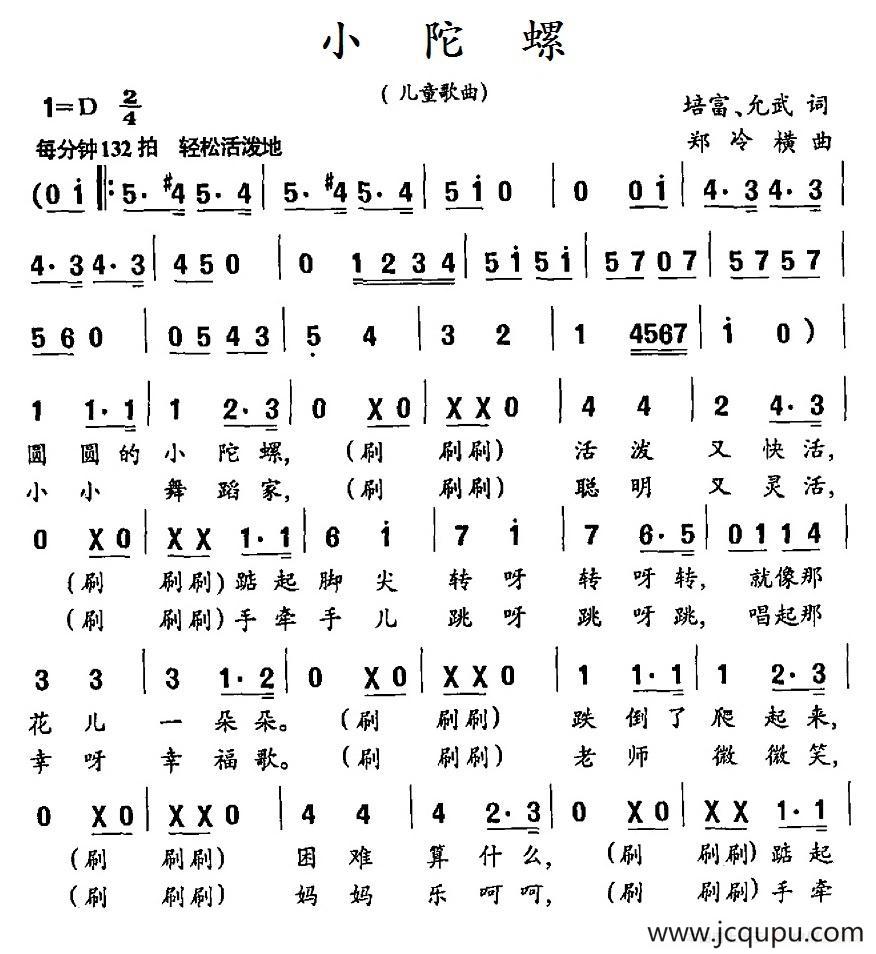 小 陀 螺
（儿童歌曲）
1=D 2/4
培富、允武 词
每分钟132拍 轻松活泼地
郑 冷 横 曲
(0 i ‖: 5· #4 5· 4 | 5· #4 5· 4 | 5 i 0 | 0 0 i | 4· 3 4· 3 |
4· 3 4· 3 | 4 5 0 | 0 1 2 3 4 | 5 i 5 i | 5 7 0 7 | 5 7 5 7 |
5 6 0 | 0 5 4 3 | 5 4 | 3 2 | 1 4567 | i 0 ) |
1 1· 1 | 1 2· 3 | 0 X 0 | X X 0 | 4 4 | 2 4· 3 |
圆 圆 的 小 陀 螺,（刷 刷 刷）活 泼 又 快 活,
小 小 舞 蹈 家,（刷 刷 刷）聪 明 又 灵 活,
0 X 0 | X X 1· 1 | 6 i | 7 i | 7 6· 5 | 0 1 1 4 |
（刷 刷 刷）踮 起 脚 尖 转 呀 转 呀 转, 就 像 那
（刷 刷 刷）手 牵 手 儿 跳 呀 跳 呀 跳, 唱 起 那
3 3 | 3 1· 2 | 0 X 0 | X X 0 | 1 1· 1 | 1 2· 3 |
花 儿 一 朵 朵。（刷 刷 刷）跌 倒 了 爬 起 来,
幸 呀 幸 福 歌。（刷 刷 刷）老 师 微 微 笑,
0 X 0 | X X 0 | 4 4 | 4 2· 3 | 0 X 0 | X X 1· 1 |
（刷 刷 刷）困 难 算 什 么,（刷 刷 刷）踮 起
（刷 刷 刷）妈 妈 乐 呵 呵,（刷 刷 刷）手 牵
www.jcqupu.com